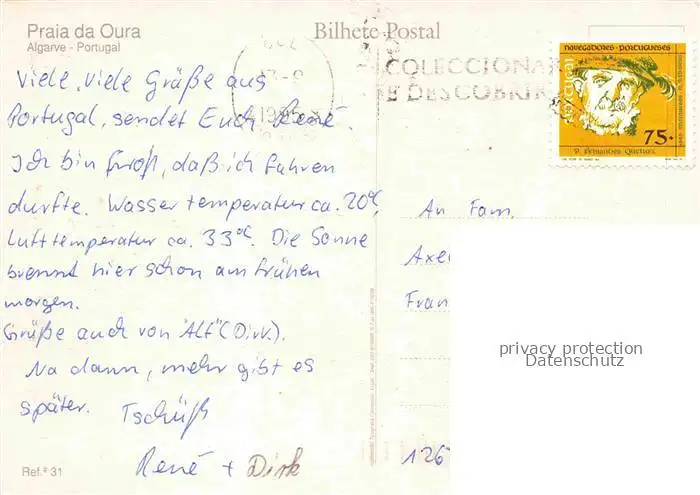 Praia da Oura
Algarve - Portugal
Bilhete Postal
COLECCIONAR
E DESCOBRIR
NAVEGADORES PORTUGUESES
PORTUGAL
75.
Viele, viele Grüße aus
Portugal, sendet Euch René.
Ich bin froß, daß ich fahren
durfte. Wassertemperatur ca. 20°C,
Lufttemperatur ca. 33°C. Die Sonne
brennt hier schon am frühen
morgen.
Grüße auch von "Alf" (Dirk).
Na dann, mehr gibt es
später. Tschüß
René + Dirk
An Fam.
Axel
Fran
126
privacy protection
Datenschutz
Ref.ª 31